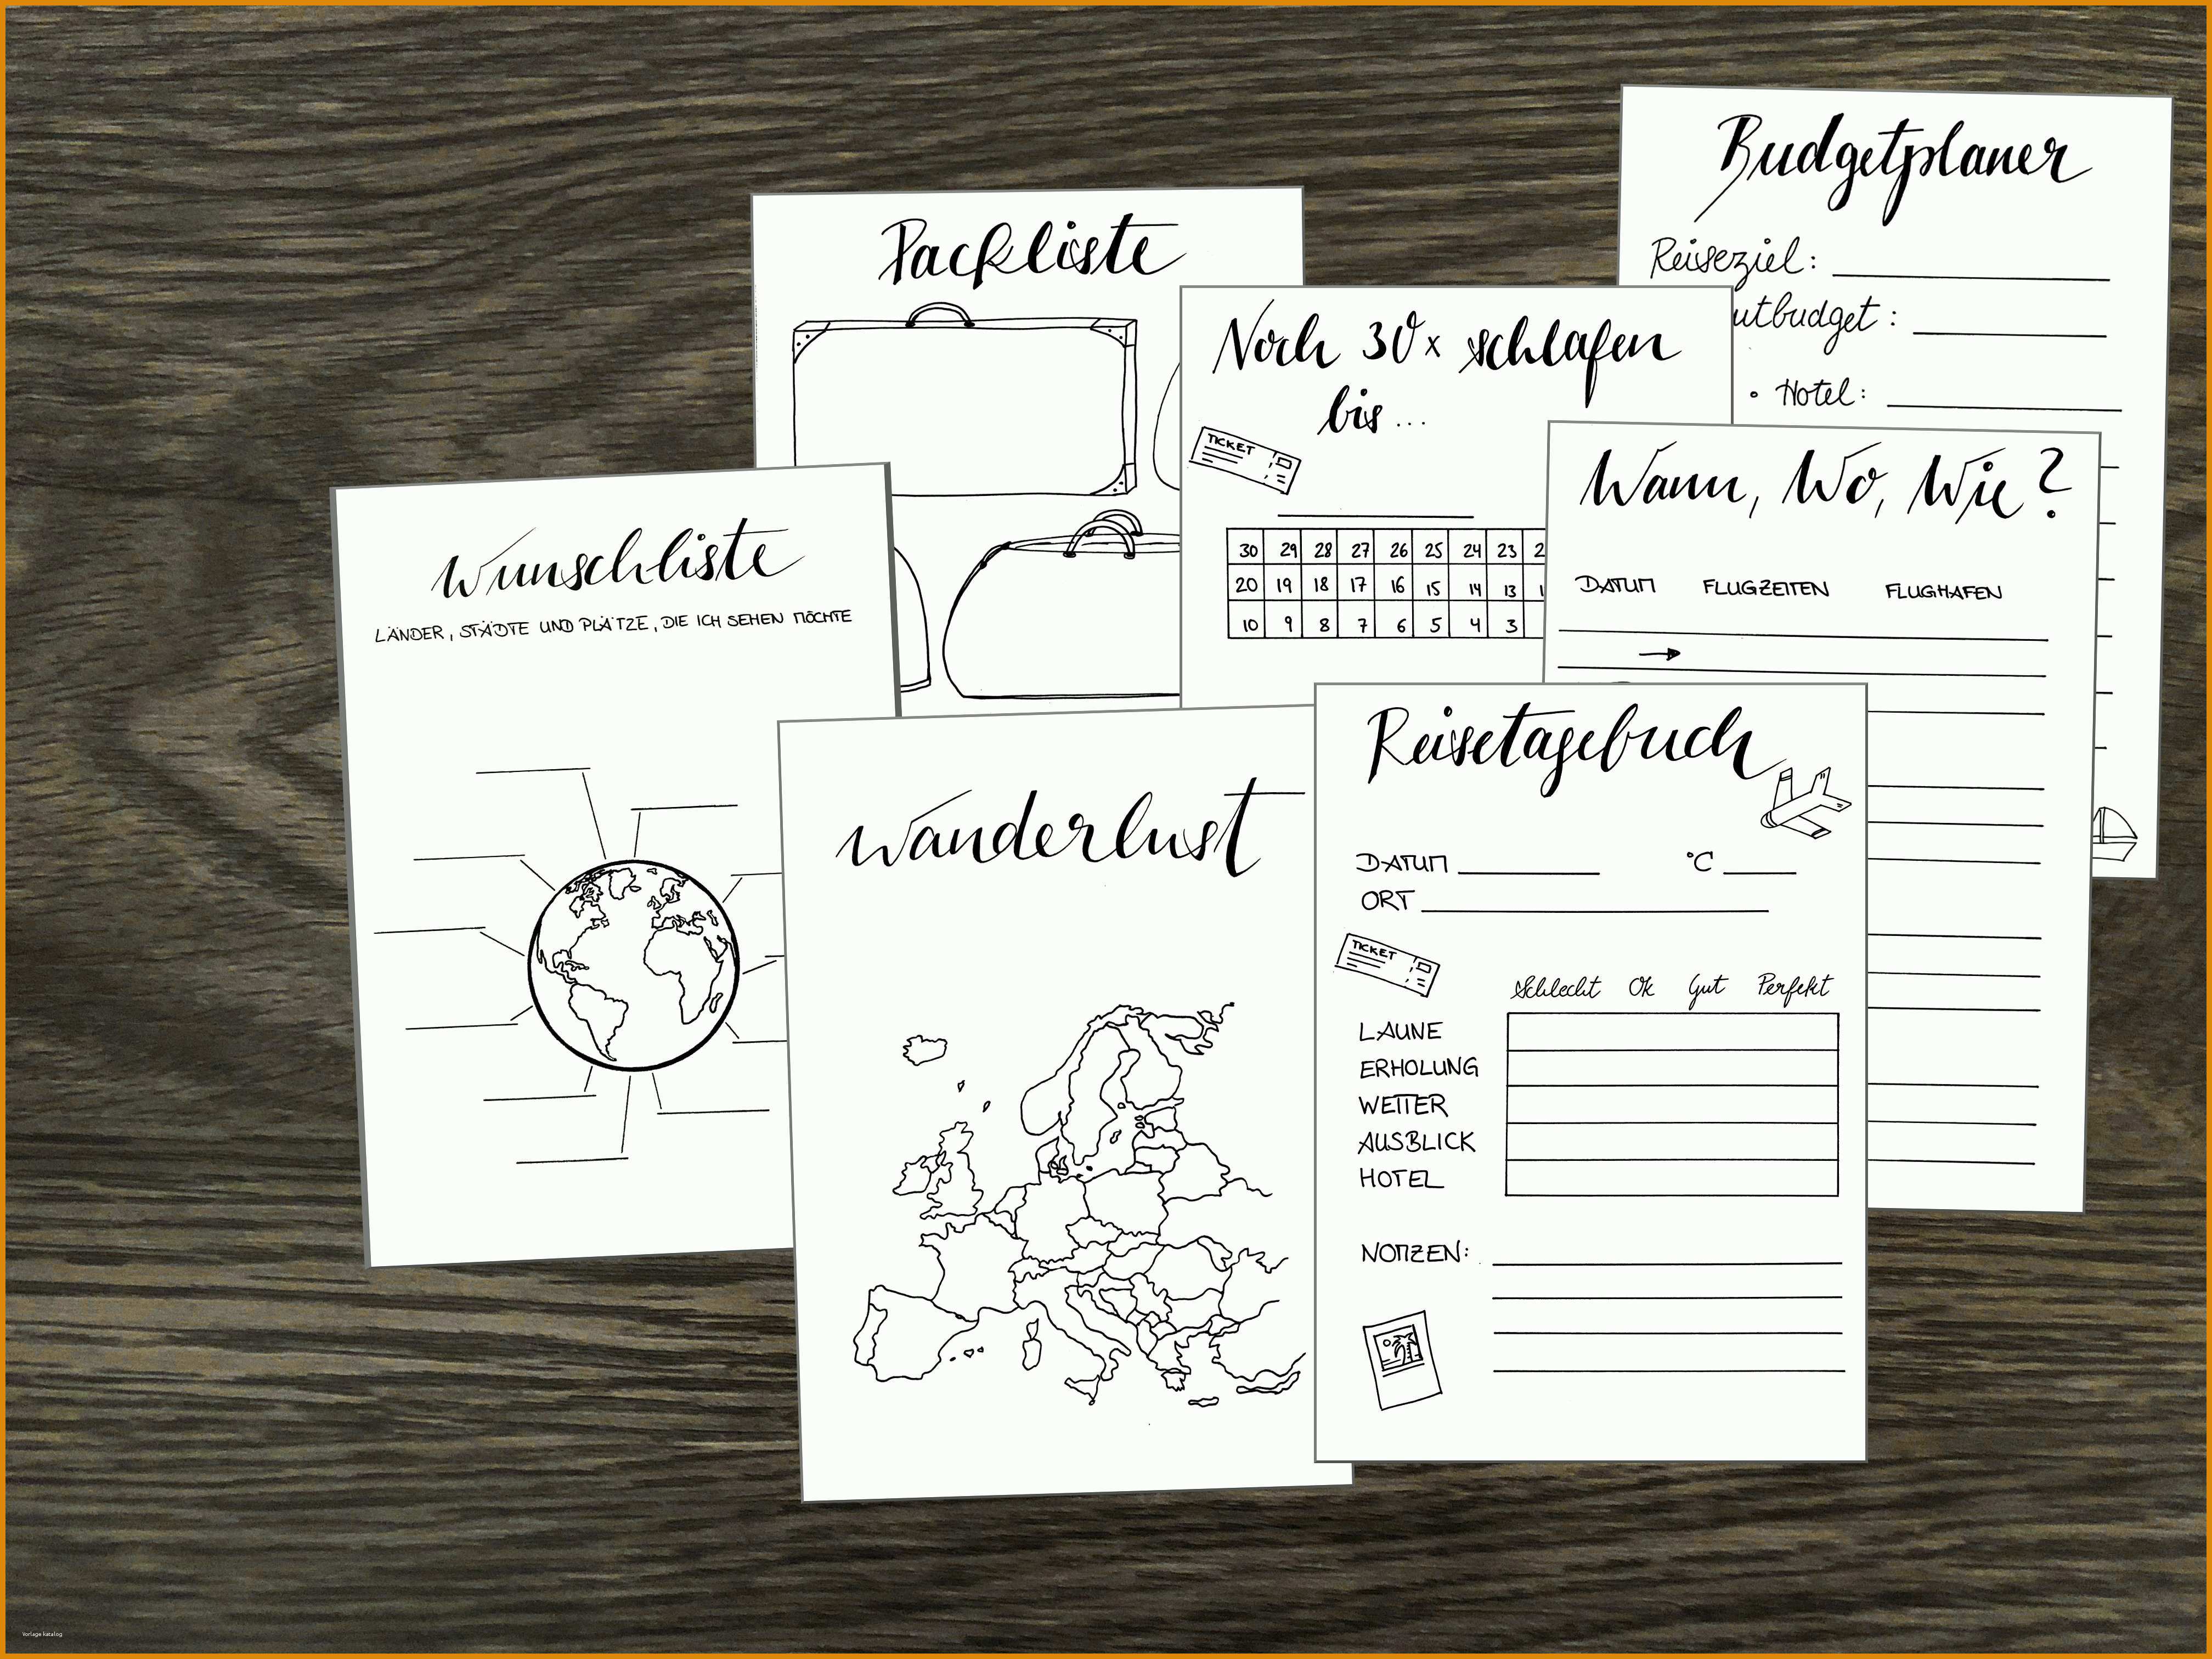 Budgetplaner
Reiseziel:
utbudget :
• Hotel:
Packliste
Noch 30x schlafen
bis ...
TICKET
30 29 28 27 26 25 24 23 2
20 19 18 17 16 15 14 13 1
10 9 8 7 6 5 4 3
Wann, Wo, Wie?
DATUM FLUGZEITEN FLUGHAFEN
Wunschliste
LÄNDER, STÄDTE UND PLÄTZE, DIE ICH SEHEN MÖCHTE
Wanderlust
Reisetagebuch
DATUM °C
ORT
TICKET
Schlecht Ok Gut Perfekt
LAUNE
ERHOLUNG
WETTER
AUSBLICK
HOTEL
NOTIZEN:
Vorlage katalog